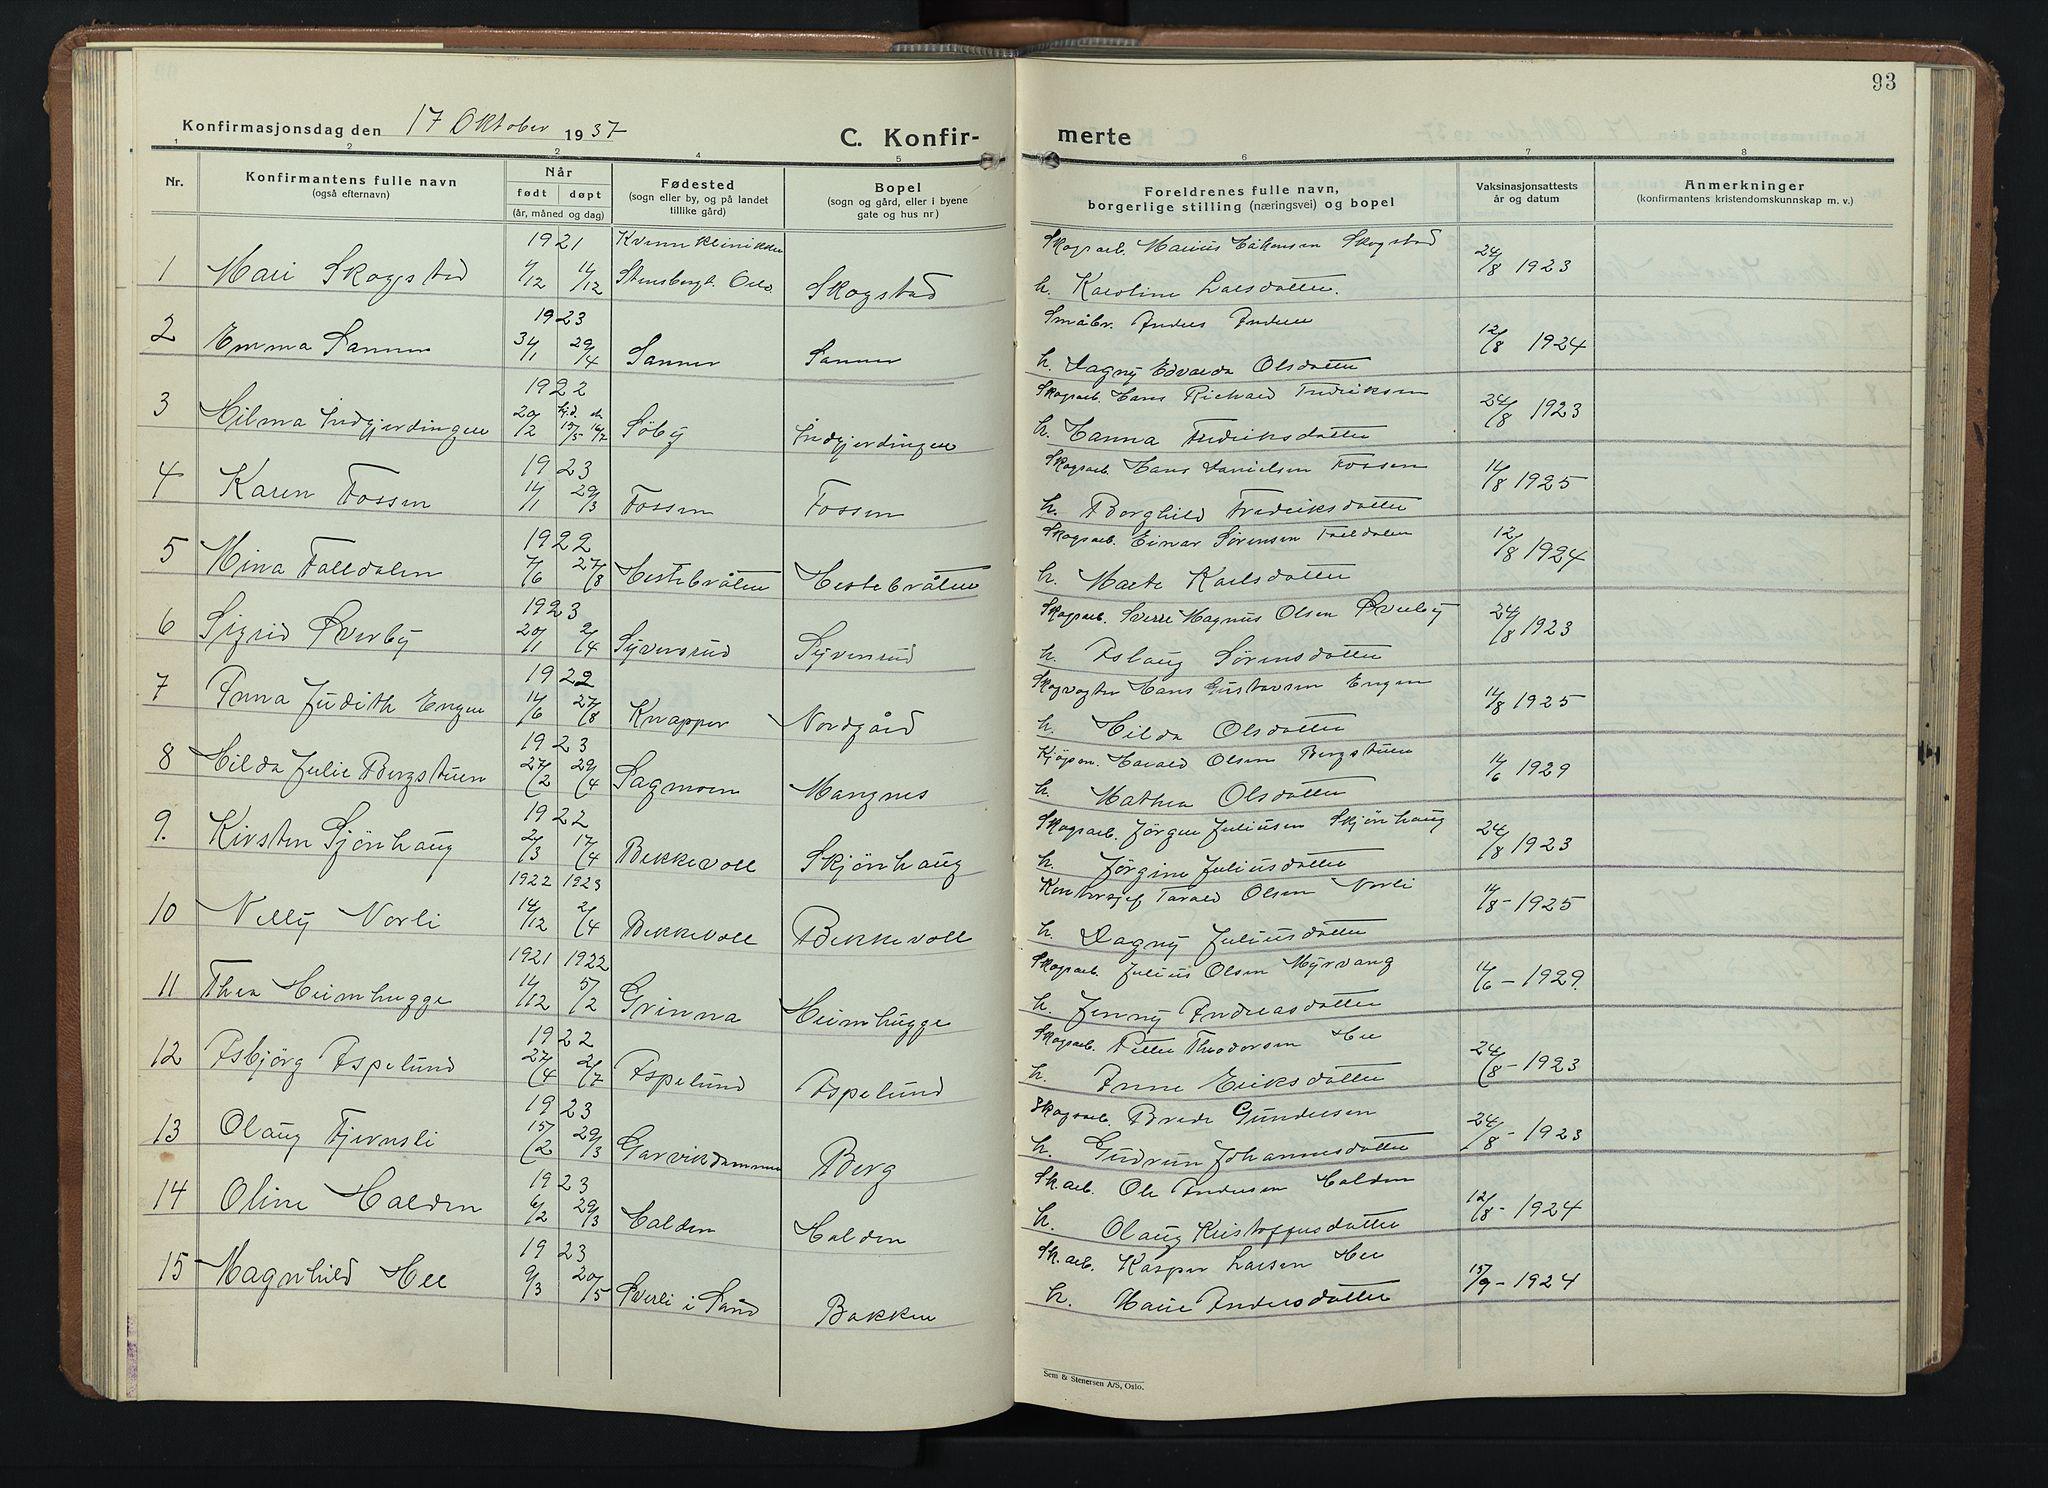 93
Konfirmasjonsdag den 17 Oktober 1937
C. Konfir- merte
1 2 2 4 5 6 7 8
Nr. Konfirmantens fulle navn (også efternavn) Når født døpt (år, måned og dag) Fødested (sogn eller by, og på landet tillike gård) Bopel (sogn og gård, eller i byene gate og hus nr) Foreldrenes fulle navn, borgerlige stilling (næringsvei) og bopel Vaksinasjonsattests år og datum Anmerkninger (konfirmantens kristendomskunnskap m. v.)
1921 Kvinneklinikken Skogsarb. Marius Håkonsen Skogstad
1 Mari Skogstad 11/12 Stensbergt. Oslo Skogstad h. Karoline Larsdatter. 24/8 1923
1923 Småbr. Anders Andersen
2 Emma Sanner 31/1 29/4 Sanner Sanner h. Dagny Edvarda Olsdatter 12/8 1924
1922 Skogsarb. Hans Richard Fredriksen
3 Hilma Indgjerdingen 20/2 hjd. 15/5 16/7 Søby Indgjerdingen h. Hanna Fredriksdatter 24/8 1923
1923 Skogsarb. Hans Danielsen Fossen
4 Karen Fossen 14/1 29/3 Fossen Fossen h. Borghild Fredriksdatter 14/8 1925
1922 Skogsarb. Einar Sørensen Falldalen
5 Mina Falldalen 7/6 27/8 Hestebråten Hestebråten h. Marte Karlsdatter 12/8 1924
1923 Skogsarb. Sverre Magnus Olsen Øverby
6 Sigrid Øverby 20/1 2/4 Syversrud Syversrud h. Aslaug Sørensdatter 24/8 1923
1922 Skogvogter Hans Gustavsen Engen
7 Anna Judith Engen 14/6 27/8 Knapper Nordgård h. Hilda Olsdatter 14/8 1925
1923 Kjøpm. Harald Olsen Bergstuen
8 Hilda Julie Bergstuen 27/2 29/4 Sagmoen Mangnes h. Mathea Olsdatter 14/6 1929
1922 Skogsarb. Jørgen Juliussen Skjønhaug
9. Kirsten Sjønhaug 2/3 17/4 Bekkevoll Skjønhaug h. Jørgine Juliusdatter 24/8 1923
1922 1923 Kontorsjef Tarald Olsen Norli
10 Nelly Norli 14/12 2/4 Bekkevoll Bekkevoll h. Dagny Juliusdatter 14/8 - 1925
1921 1922 Skogsarb. Julius Olsen Myrvang
11 Thea Heimhugge 14/12 5/2 Grinna Heimhugge h. Jenny Andreasdatter 14/6 - 1929.
1922 Skogsarb. Petter Theodorsen Hee
12 Asbjørg Aspelund 27/4 2/7 Aspelund Aspelund h. Anne Eriksdatter 24/8 - 1923
1923 Skogsarb. Brede Gundersen
13 Olaug Fjernsli 15/2 29/3 Garvikdammen Berg h. Gudrun Johannesdatter 24/8 - 1923
1923 Sk.arb. Ole Andersen Halden
14 Oline Halden 6/2 29/3 Halden Halden h. Olaug Kristoffersdatter 12/8 - 1924
1923 Sk.arb. Kasper Larsen Hee
15 Magnhild Hee 9/3 20/5 Sverli i Sand Bakken h. Marie Andersdatter 15/9 - 1924
Sem & Stenersen A/S, Oslo.